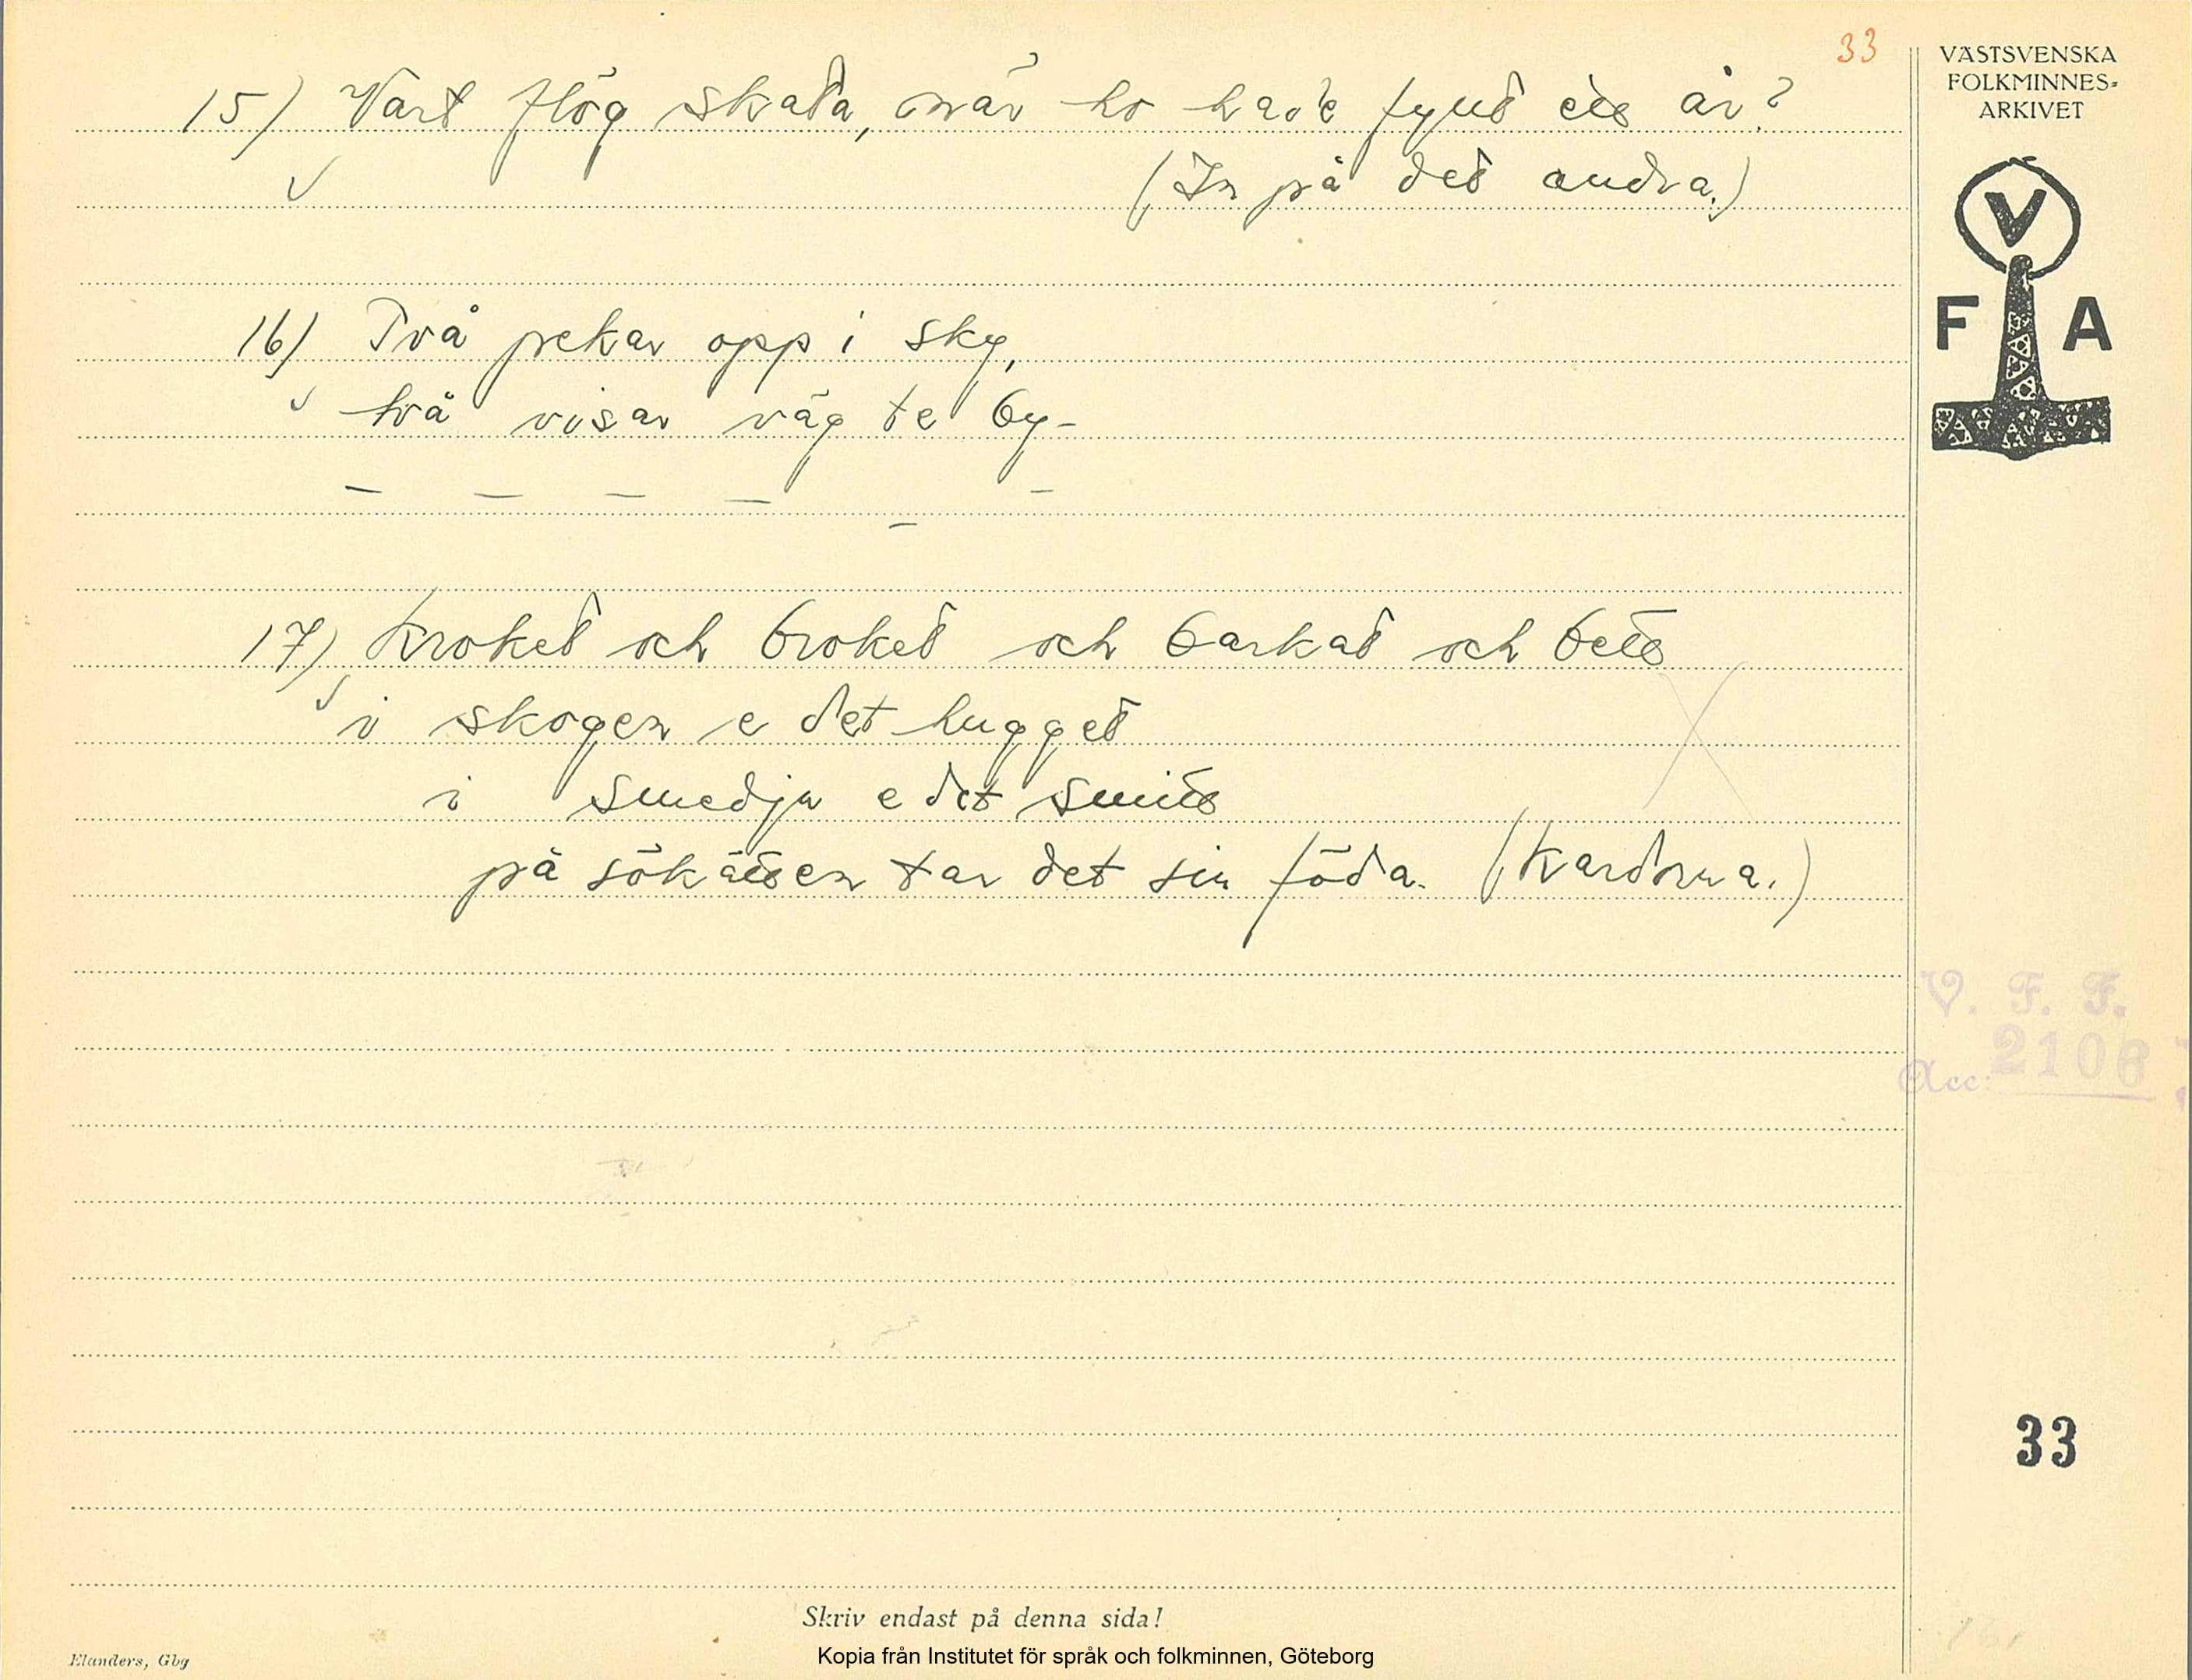 33
15) Vart flög skata, när ho hade fyllt ett år?
(In på det andra.)
16) Två pekar opp i sky,
två visar väg te by -
- - - - - -
17) Kroket och broket och barkat och bett
i skogen e det hugget
i smedja e det smitt
på ryggen tar det sin föda. (Kardorna.)
VÄSTSVENSKA
FOLKMINNES-
ARKIVET
V
F A
V. F. F.
Acc: 2106
33
Skriv endast på denna sida!
Kopia från Institutet för språk och folkminnen, Göteborg
Elanders, Gbg